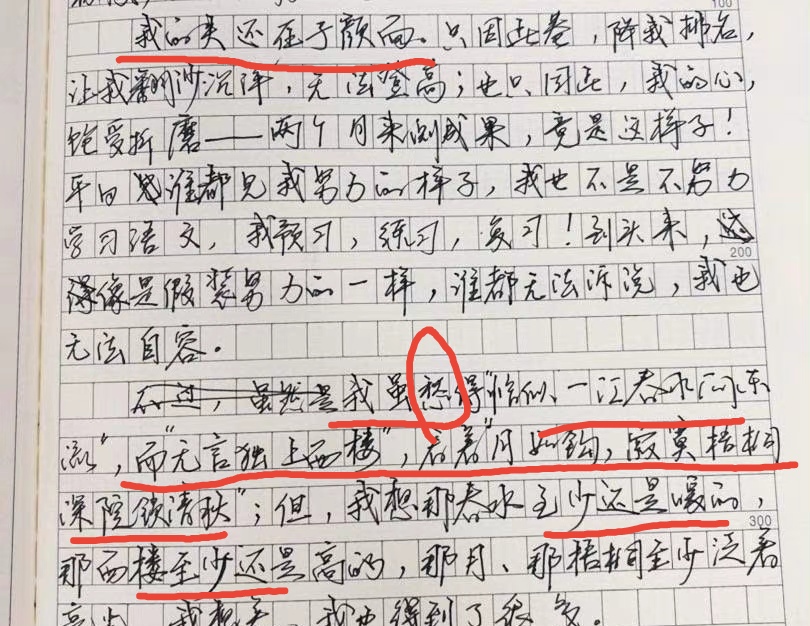 100
我的失还在于颜面。只因此卷，降我排名，
让我翻沙沉阵，无法登高；也只因此，我的心，
饱受折磨——两个月来测成果，竟是这样子！
平日谁都见我努力的样子，我也不是不努力
学习语文，我预习，练习，复习！到头来，
200
像是假装努力的一样，谁都无法诉说，我也
无法自容。
不过，虽然是我虽愁得"恰似一江春水向东
流"，而"无言独上西楼"，看着"月如钩，寂寞梧桐
深院锁清秋"；但，我想那春水至少还是暖的，
300
那西楼至少还是高的，那月、那梧桐至少泛着
我也得到了很多。